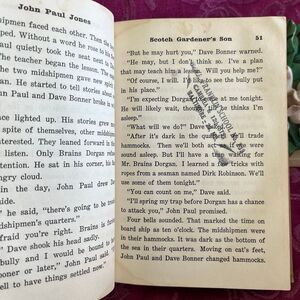 John Paul Jones
shipmen faced each other. Then the
ped. Without a word he rose to his
Paul quietly took the seat next to
The teacher began the lesson. The
the two midshipmen gave simply
ohn Paul and Dave Bonner broke in
ce lighted up. His stories grew
pt of themselves, the other mid-
interested. They leaned forward in
listen. Only Brains Dorgan re-
attention. He sat in his corner, his
ngry cloud.
in the day, John Paul drew
e," he said, "there's going to be
midshipmen's quarters."
afraid you're right. Brains is
Dave shook his head sadly.
bully and I would be bound to
ooner or later," John Paul said.
ell to have things settled now."
Scotch Gardener's Son 51
"But he may hurt you," Dave Bonner warned.
"He may, but I don't think so. I've a plan
that may teach him a Will you help me?"
"Of course! I'd like to see the bully
in his place."
"I'm expecting Dorgan at me tonight.
He will likely wait, though, we're asleep."
"What do we do?"
"After it's dark in the quarters we'll trade
hammocks. Then we'll both act as if we were
asleep. But you and I'll be a surprise waiting
for Mr. Brains Dorgan. I learned a few tricks
with ropes from a seaman named Dirk Robinson.
We'll use some of them tonight."
"You can count on me," Dave said.
"I'll spring my trap before Dorgan has a chance
to attack you," John Paul promised.
Four bells sounded. That marked the time on
board ship as ten o'clock. The midshipmen were in
their hammocks. It was dark as the bottom of
the sea in their quarters. Moving on cat's feet,
John Paul and Dave Bonner changed hammocks.